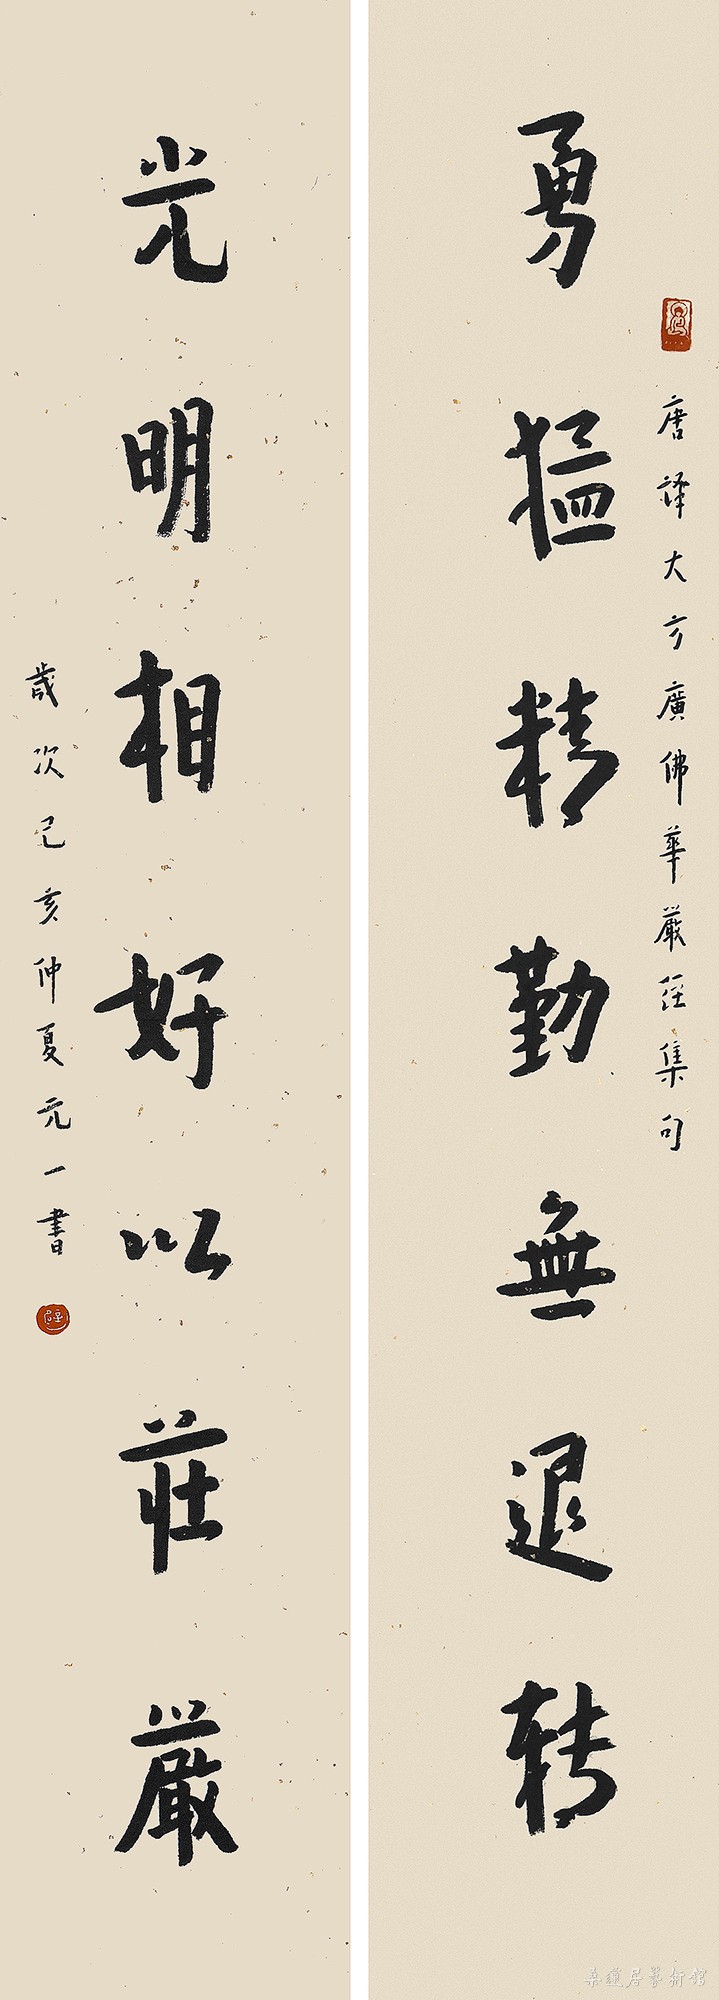 勇猛精勤無退转
唐譯大方廣佛華嚴經集句
光明相好以莊嚴
歲次己亥仲夏元一書
桑蓮居藝術館